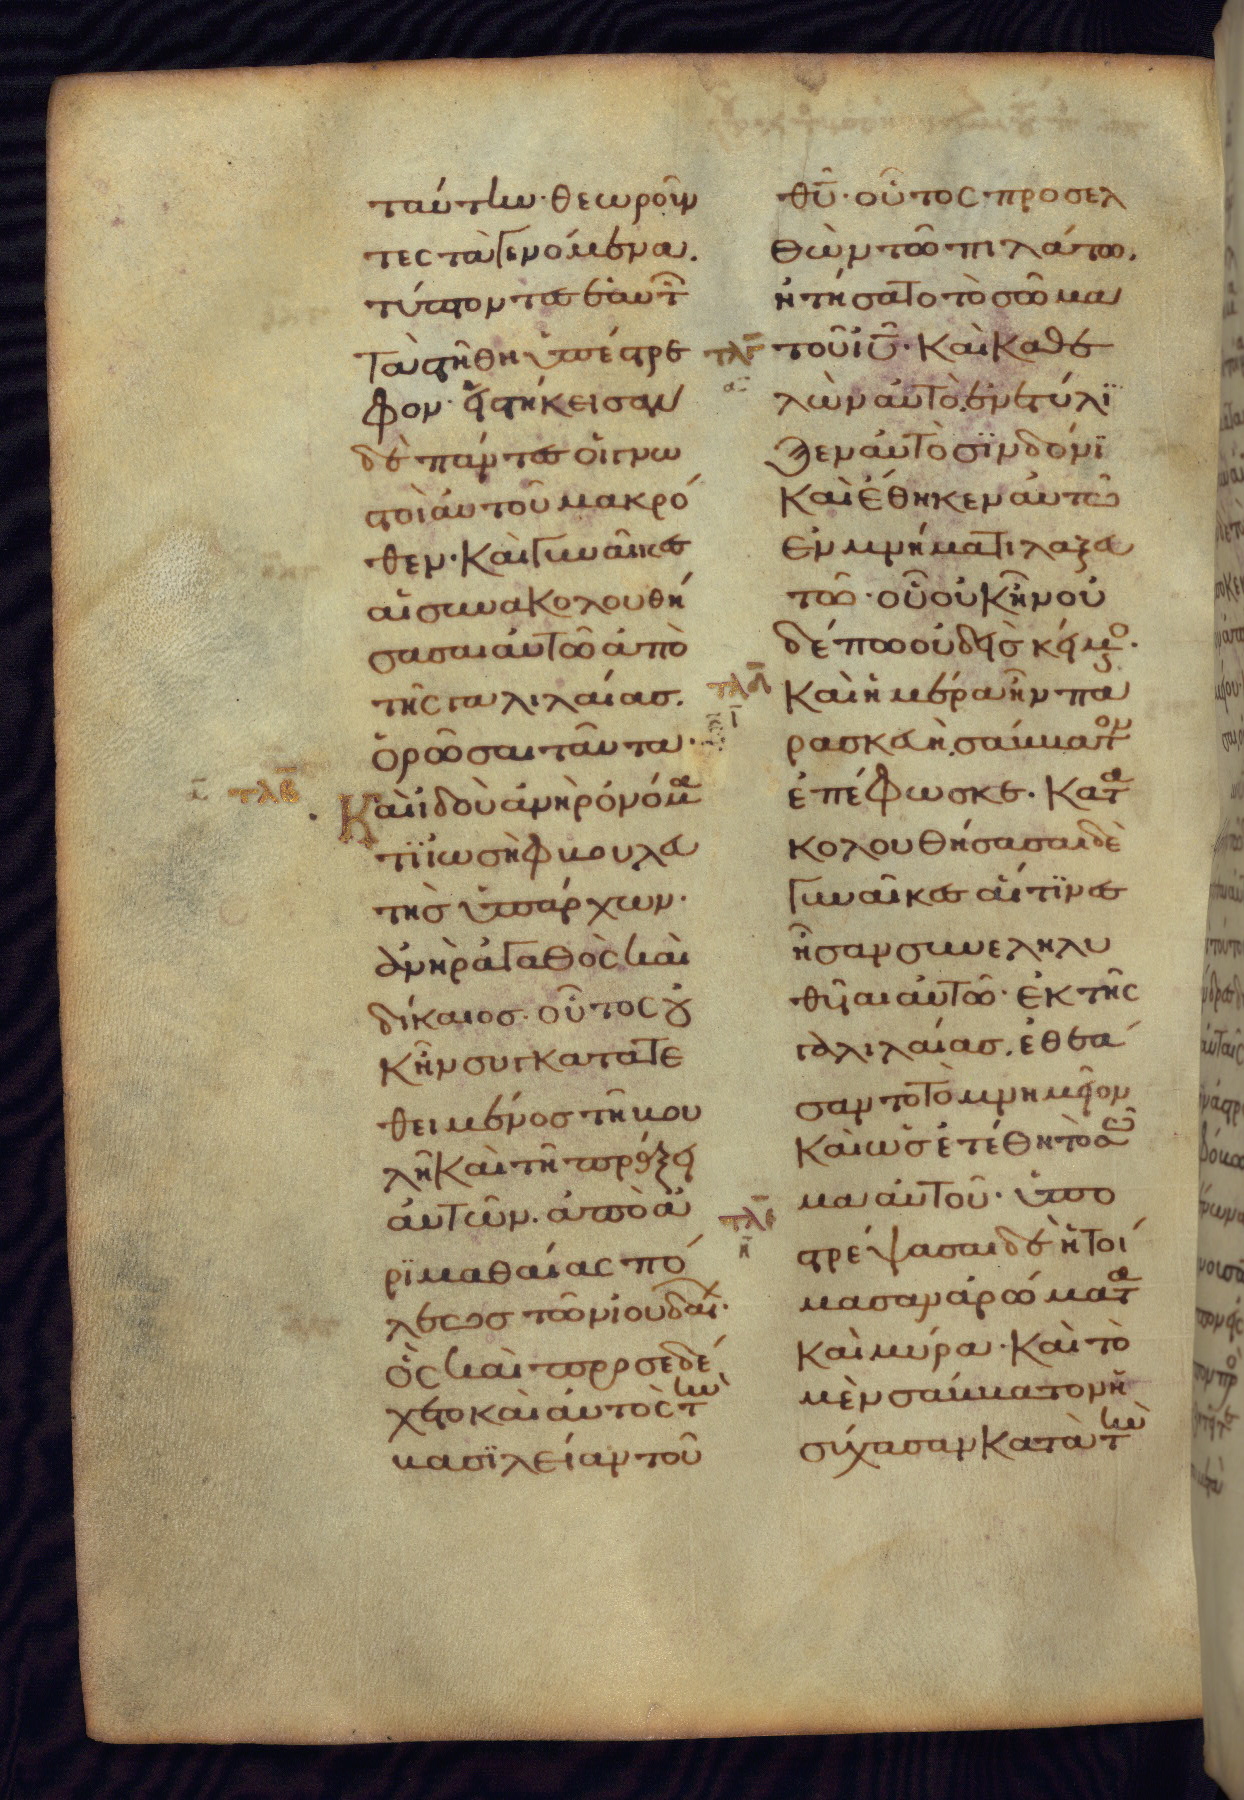 ταύτην· θεωροῦν
τες τὰ γενόμενα.
τύπτοντες ἑαυτῶ
τὰ στήθη ὑπέστρε
φον· εἱστήκεισαν
δὲ πάντες οἱ γνω
στοὶ αὐτοῦ μακρό
θεν· Καὶ γυναῖκες
αἱ συνακολουθή
σασαι αὐτῶ ἀπὸ
τῆς γαλιλαίας.
ὁρῶσαι ταῦτα·
α τλβ
Καὶ ἰδοὺ ἀνὴρ ὀνόμα
τϊ ἰωσὴφ βουλευ
τὴς ὑπάρχων·
ἀνὴρ ἀγαθὸς καὶ
δίκαιος· οὗτος οὐ
κ ἦν συγκατατε
θειμένος τῆ βου
λῆ καὶ τῆ πράξει
αὐτῶν. ἀπὸ ἀ
ρϊμαθαίας πό
λεως τῶν ἰουδαί·
ὃς καὶ προσεδέ
χετο καὶ αὐτὸς τὴν
βασϊλείαν τοῦ
θῦ· οὗτος προσελ
θὼν τῶ πιλάτω.
ἠτήσατο τὸ σῶμα
τλγ
α
τοῦ ἰῦ· Καὶ καθε
λὼν αὐτὸ. ἐνετύλϊ
ξεν αὐτὸ σϊνδόνϊ
Καὶ ἔθηκεν αὐτὸ
ἐν μνήματι λαξευ
τῶ· οὗ οὐκ ἦν οὐ
δέπω οὐδεὶς κείμο·
τλδ
ι
Καὶ ἡμέρα ἦν πα
ρασκευὴ. σάββατον
ἐπέφωσκε· Κατα
κολουθήσασαι δὲ
γυναῖκες αἵτϊνες
ἦσαν συνεληλυ
θυῖαι αὐτῶ· ἐκ τῆς
γαλιλαίας. ἐθεά
σαντο τὸ μνημεῖον
Καὶ ὡς ἐτέθη τὸ σῶ
μα αὐτοῦ· ὑπο
τλε
η
στρέψασαι δὲ ἡτοί
μασαν ἀρώματα
καὶ μύρα· Καὶ τὸ
μὲν σάββατον ἡ
σύχασαν κατὰ τὴν